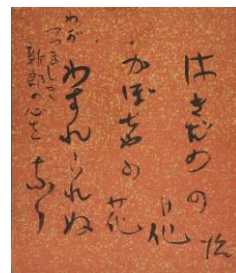 はきだめの
かぼちゃの花
わすれられぬ
わが
つつましき
新郎の心を